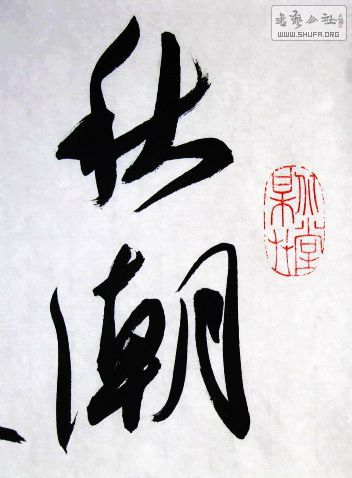 秋潮
书艺公社
WWW.SHUFA.ORG